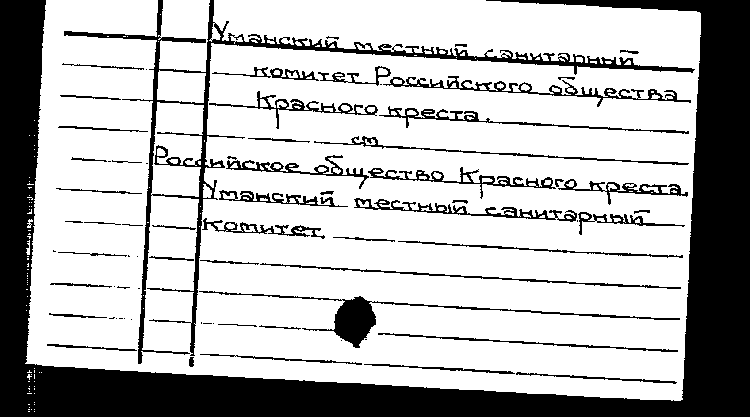 Уманский местный санитарный
комитет Российского общества
Красного креста.
см
Российское общество Красного креста.
Уманский местный санитарный
комитет.